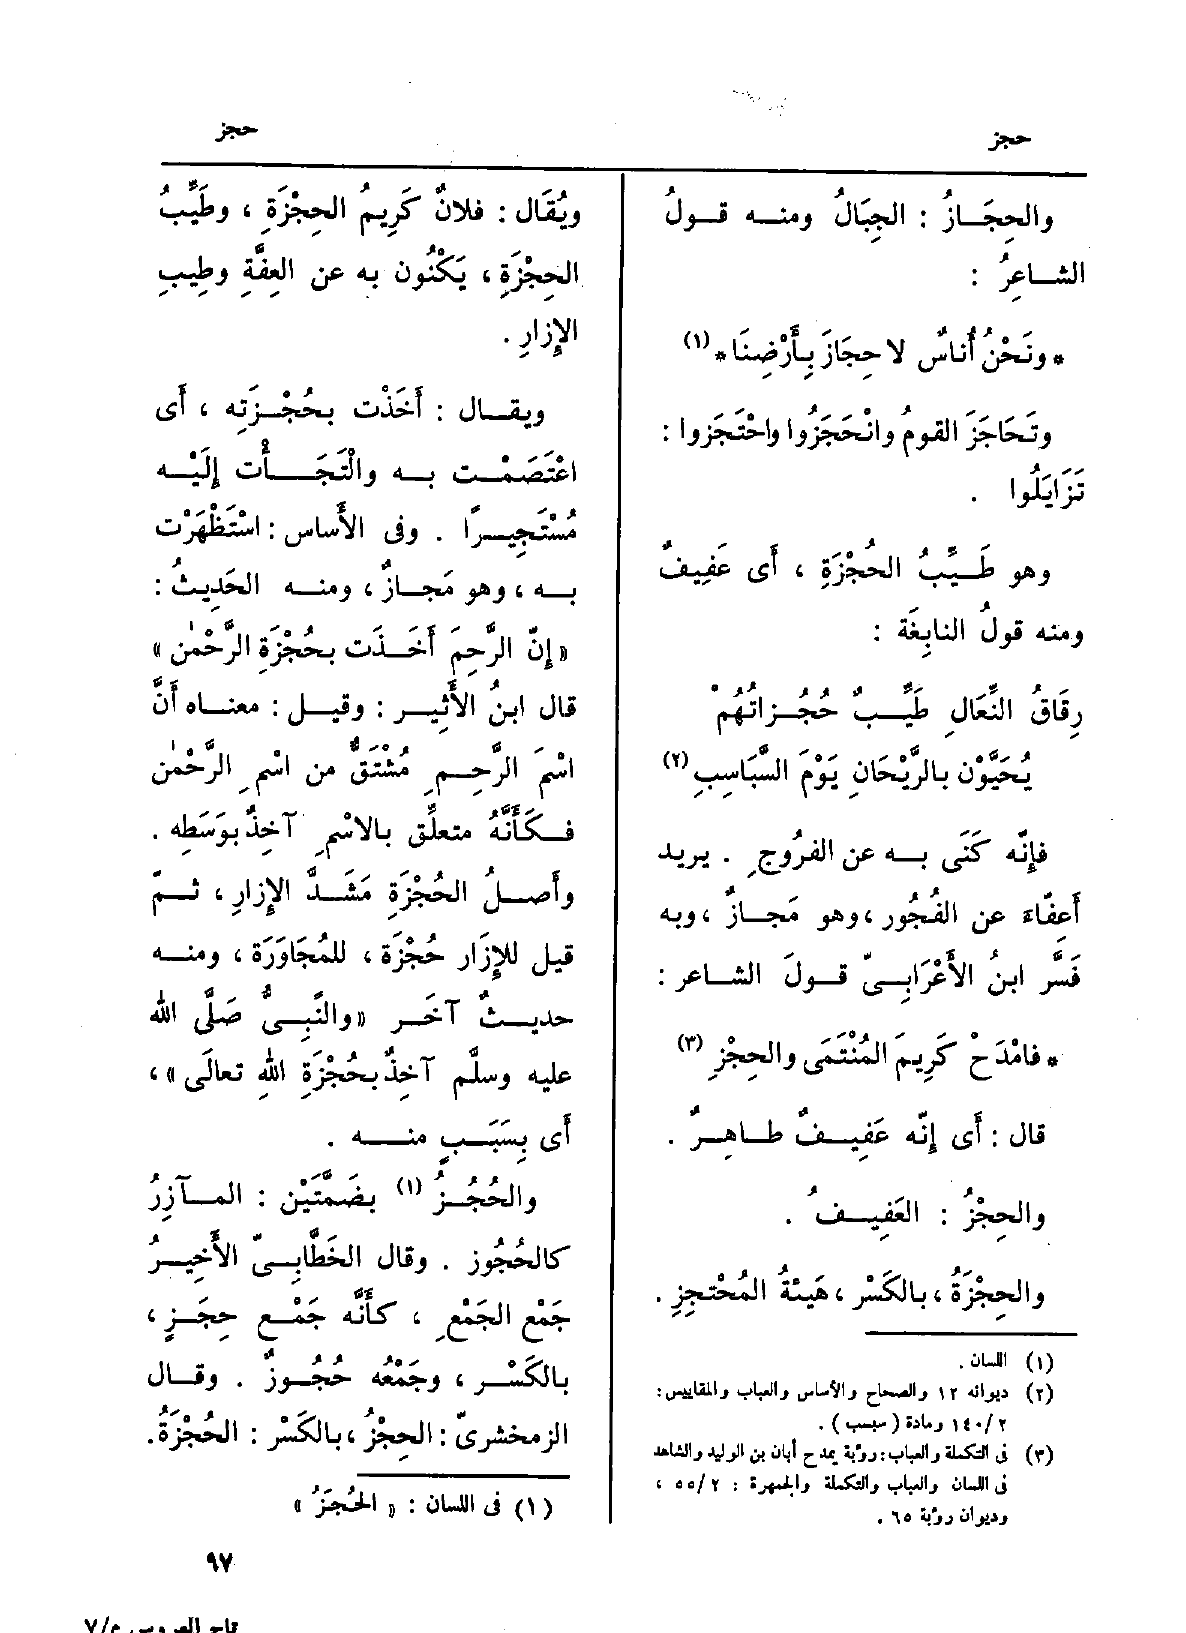 حجز
حجز
والحِجَازُ : الجِبَالُ ومنه قولُ
الشاعِرُ :
* ونَحْنُ أُناسٌ لا حِجَازَ بِأَرْضِنَا * (١)
وتَحَاجَزَ القومُ وانْحَجَزُوا واحْتَجَزوا :
تَزَايَلُوا .
وهو طَيِّبُ الحُجْزَةِ ، أَى عَفِيفٌ
ومنه قولُ النابِغَة :
رِقَاقُ النِّعَالِ طَيِّبٌ حُجُزاتُهُمْ
يُحَيَّوْن بالرَّيْحَانِ يَوْمَ السَّبَاسِبِ (٢)
فإِنّه كَنَى به عن الفروجِ . يريد
أَعِفّاءَ عن الفُجُور ، وهو مَجازٌ ، وبه
فَسَّرَ ابنُ الأَعْرَابِىّ قولَ الشاعر :
* فامْدَحْ كَرِيمَ المُنْتَمَى والحِجْزِ (٣)
قال : أَى إِنّه عَفِيفٌ طاهِرٌ .
والحِجْزُ : العَفِيفُ .
والحِجْزَةُ ، بالكَسْر ، هَيْئَةُ المُحْتجِزِ .
(١) اللسان .
(٢) ديوانه ١٢ والصحاح والأساس والعباب والمقاييس :
٢ /١٤٠ ومادة ( سبسب ) .
(٣) فى التكملة والعباب : رؤبة يمدح أبان بن الوليد والشاهد
فى اللسان والعباب والتكملة والجمهرة : ٢ /٥٥ ،
وديوان رؤبة ٦٥ .
ويُقَال : فلانٌ كَرِيمُ الحِجْزَةِ ، وطَيِّبُ
الحِجْزَةِ ، يَكْنُون به عن العِفَّةِ وطِيبِ
الإِزارِ .
ويقال : أَخَذْت بحُجْزَتِه ، أَى
اعْتَصَمْت به والْتَجَأْت إِلَيْه
مُسْتَجِيرًا . وفى الأَساس : اسْتَظْهَرْت
به ، وهو مَجازٌ ، ومنه الحَدِيثُ :
« إِنّ الرَّحِمَ أَخَذَت بحُجْزَةِ الرَّحْمٰن »
قال ابنُ الأَثِير : وقيل : معناه أَنَّ
اسْمَ الرَّحِمِ مُشْتَقٌّ من اسْمِ الرَّحْمٰن
فكَأَنَّهُ متعلِّق بالاسْمِ آخِذٌ بوَسَطِه .
وأَصلُ الحُجْزَةِ مَشَدُّ الإِزارِ ، ثمّ
قيل للإِزَار حُجْزَة ، للمُجَاوَرَة ، ومنه
حديثٌ آخَر « والنَّبِىُّ صَلَّى الله
عليه وسلَّم آخِذٌ بحُجْزَةِ اللهِ تعالَى » ،
أَى بِسَبَبٍ منه .
والحُجُزُ (١) بضَمَّتَيْن : المآزِرُ
كالحُجُوز . وقال الخَطَّابِىّ الأَخِيرُ
جَمْع الجَمْعِ ، كأَنَّه جَمْع حِجَزٍ ،
بالكَسْر ، وجَمْعُه حُجُوزٌ . وقال
الزمخشرىّ : الحِجْزُ ، بالكَسْر : الحُجْزَةُ .
(١) فى اللسان : « الحُجَزُ »
٩٧
تاج العروس م/٧